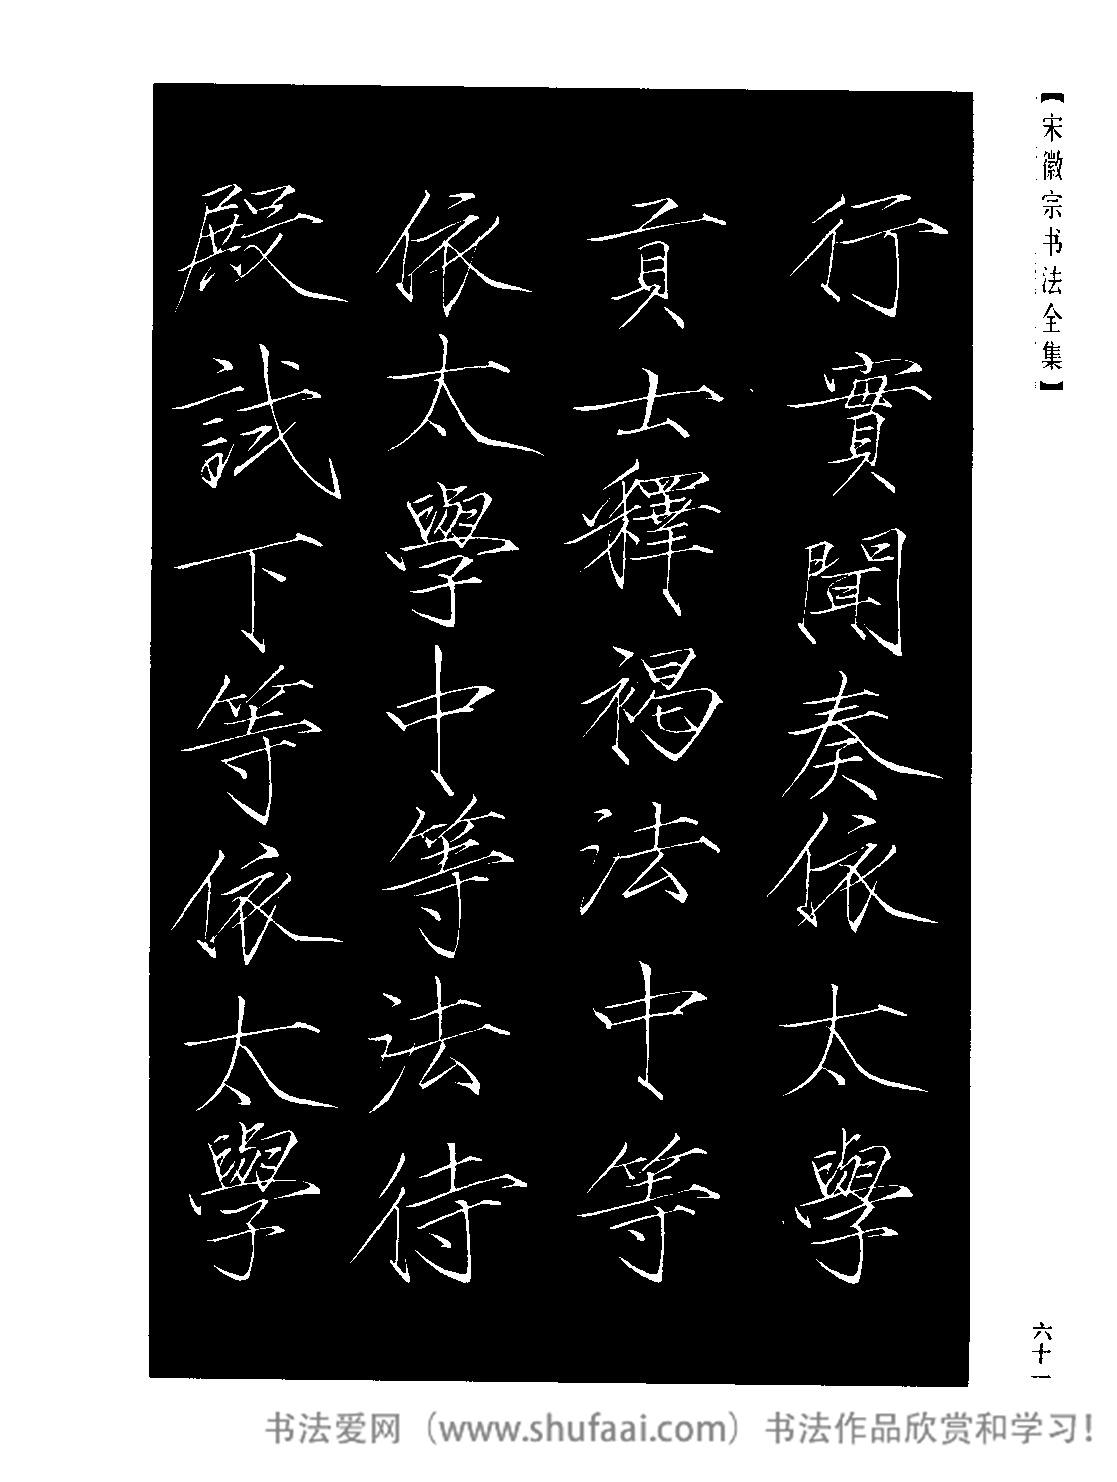 【宋徽宗书法全集】
行實聞奏依太學
貢士釋褐法中等
依太學中等法待
殿試下等依太學
六十一
书法爱网（www.shufaai.com）书法作品欣赏和学习！